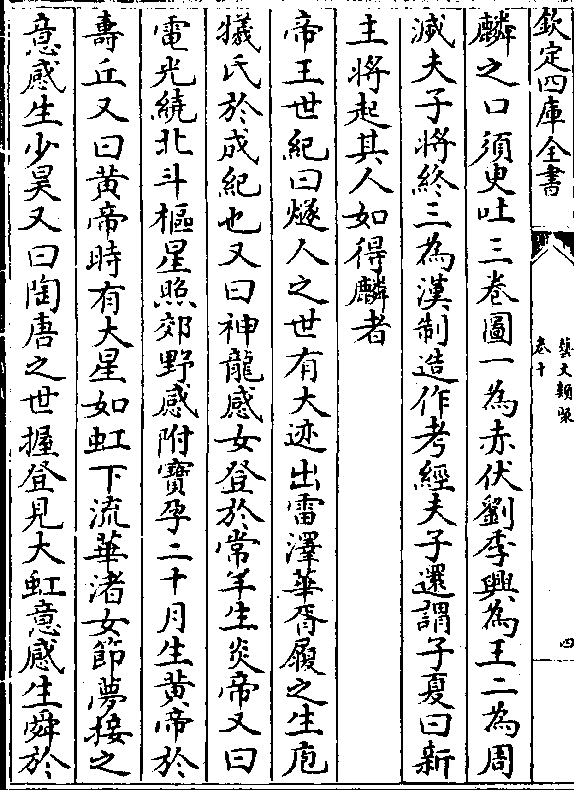 欽定四庫全書
藝文類聚
卷十
四
麟之口須臾吐三卷圖一為赤伏劉季興為王二為周
滅夫子將終三為漢制造作考經夫子還謂子夏曰新
主將起其人如得麟者
帝王世紀曰燧人之世有大迹出雷澤華胥履之生庖
犧氏於成紀也又曰神龍感女登於常羊生炎帝又曰
電光繞北斗樞星照郊野感附寶孕二十月生黃帝於
壽丘又曰黃帝時有大星如虹下流華渚女節夢接之
意感生少昊又曰陶唐之世握登見大虹意感生舜於